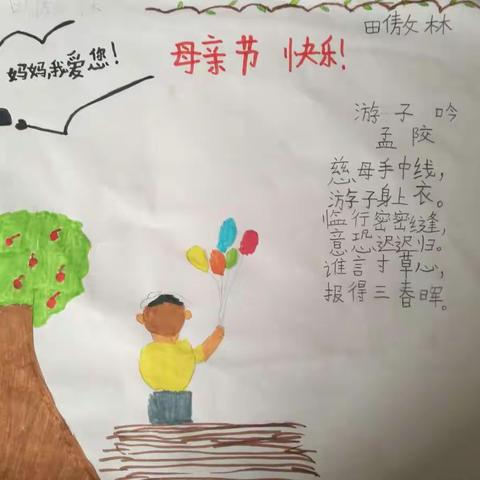 田傲林
妈妈,我爱您!
母亲节 快乐!
游子吟
孟
慈母手中线,
游子身上衣。
临行密密缝,
意恐迟迟归。
谁言寸草心,
报得三春晖。